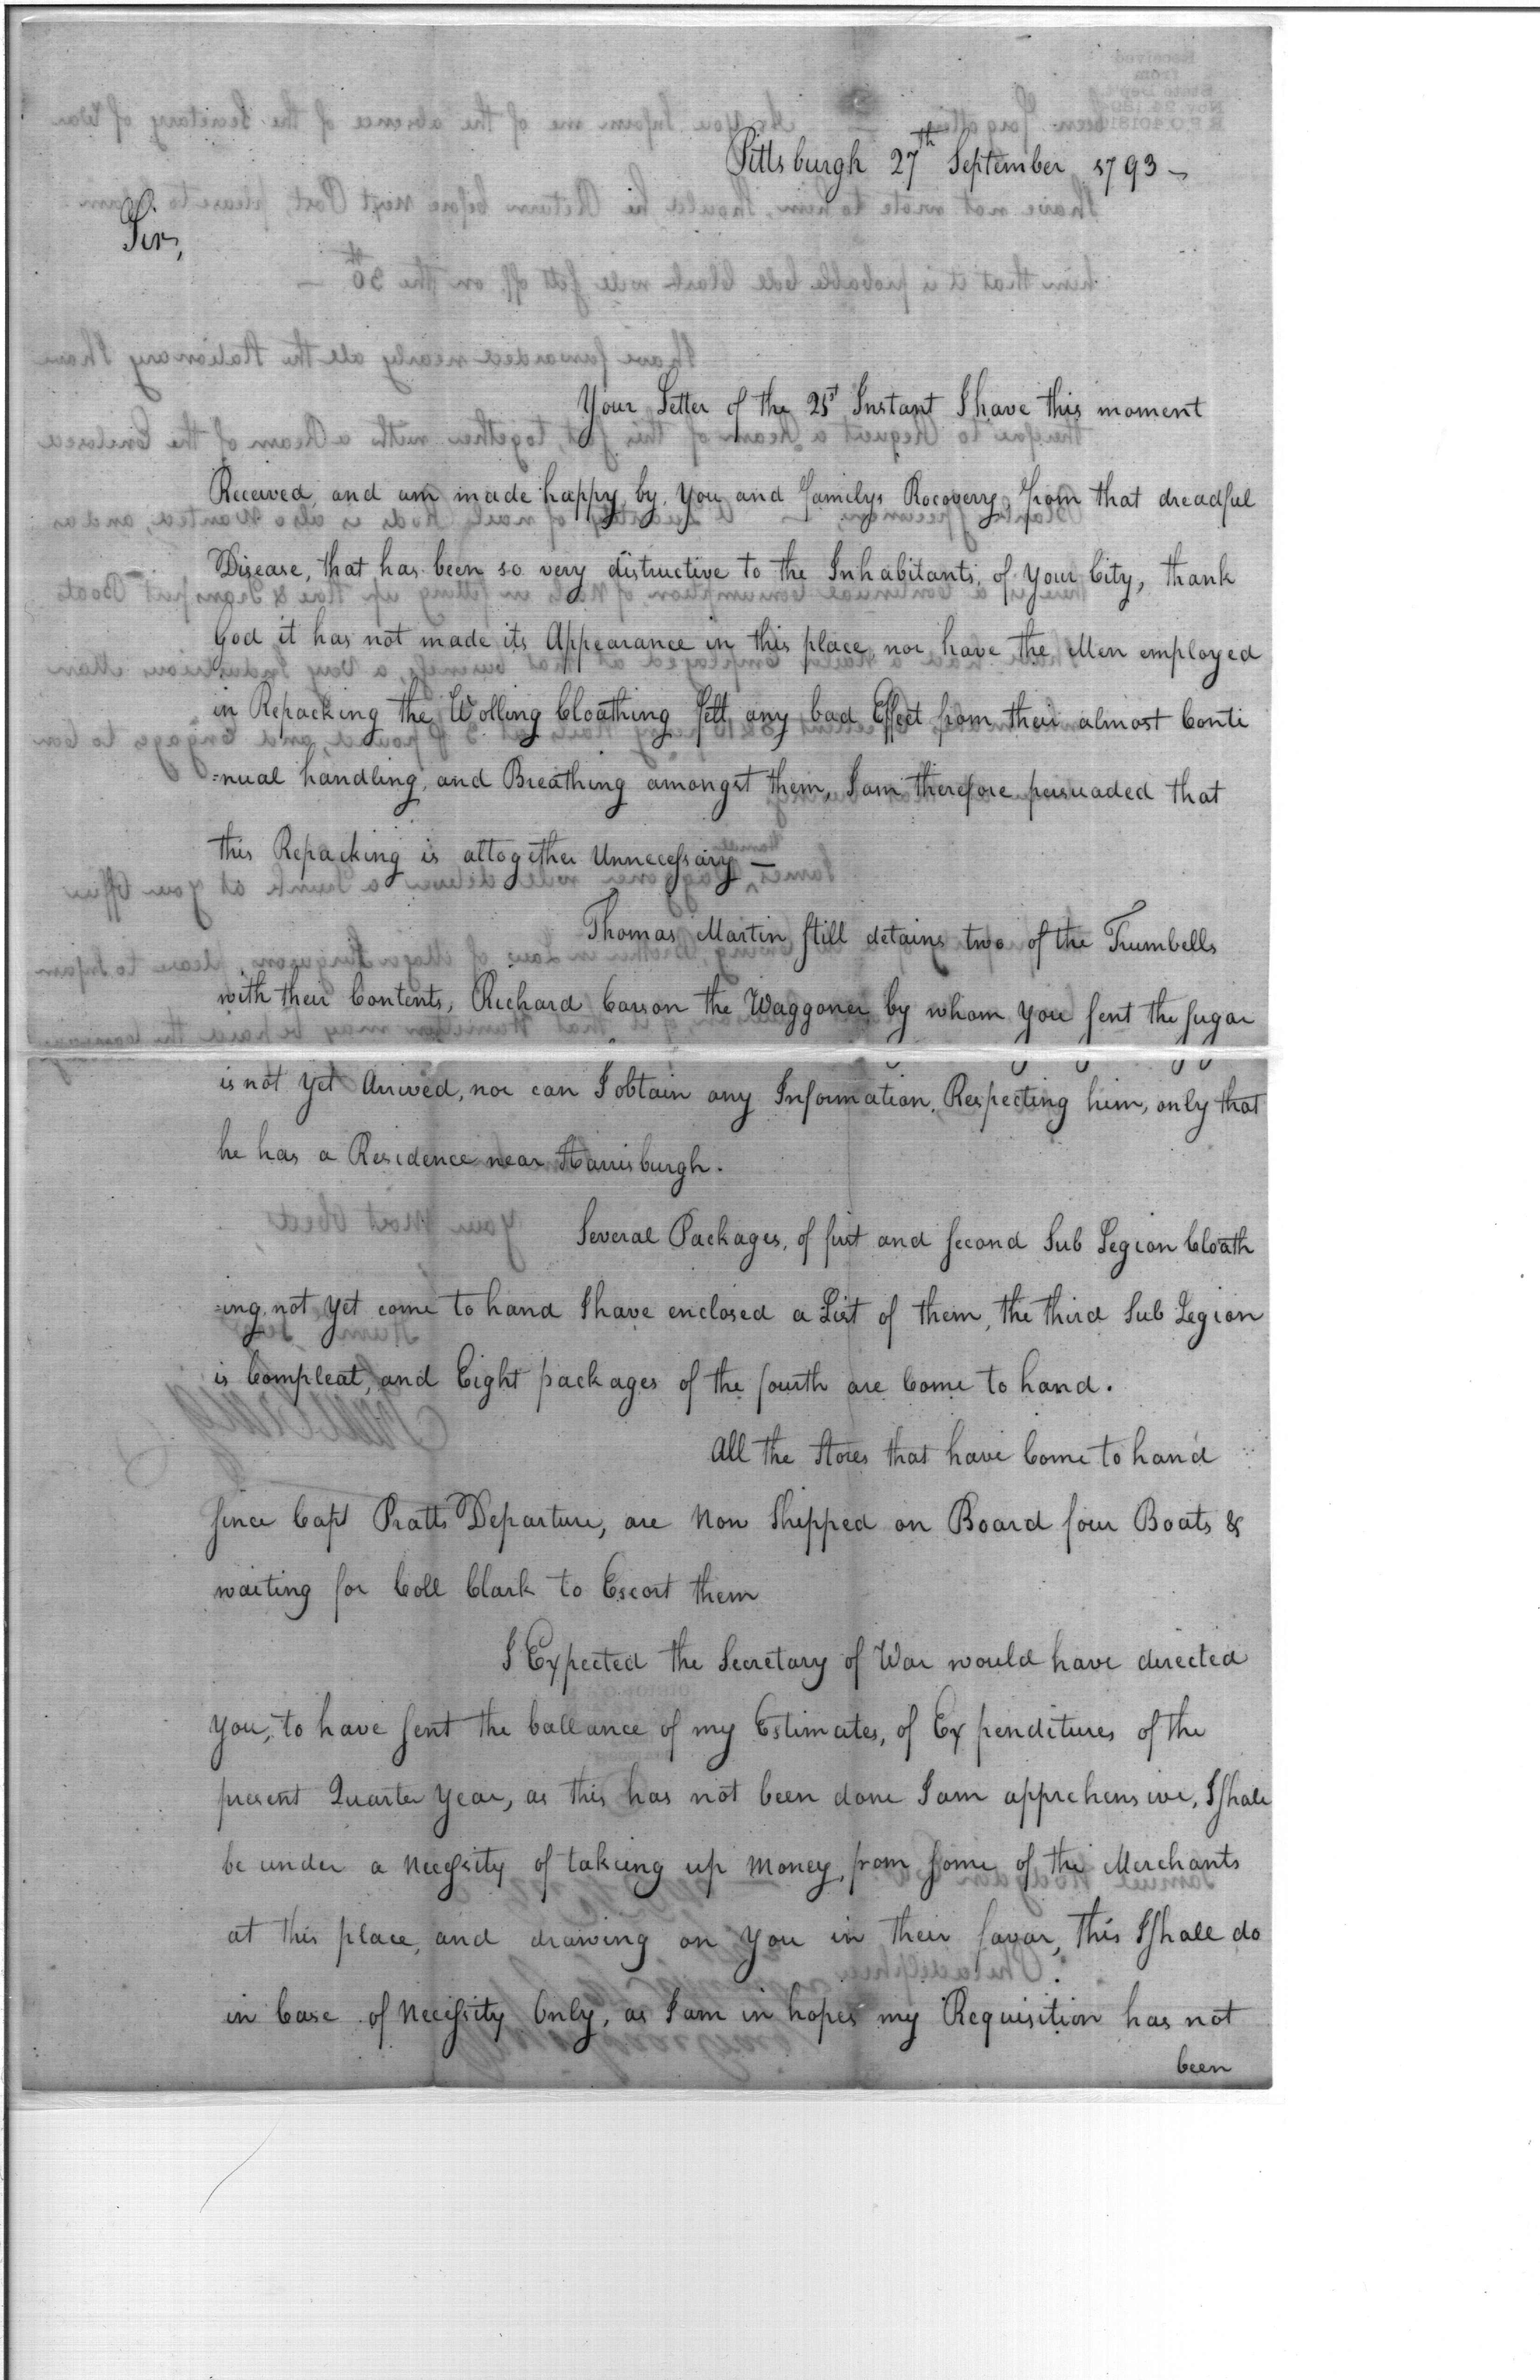 Pittsburgh 27th September 1793 –
Sir,
Your Letter of the 21st Instant I have this moment
Received, and am made happy, by you and familys Rocoverry, from that dreadful
Disease, that has been so very distructive to the Inhabitants, of your City, thank
God it has not made its Appearance in this place, nor have the Men employed
in Repacking the Wolling Cloathing felt any bad Effect from their almost Conti
=nual handling, and Breathing amongst them, I am therefore persuaded that
this Repacking is altogether Unnecessary –
Thomas Martin still detains two of the Trumbells
with their Contents, Richard Carson the Waggoner by whom you sent the sugar
is not yet Arrived, nor can I obtain any Information, Respecting him, only that
he has a Residence near Harrisburgh.
Several Packages, of first and second Sub Legion Cloath
=ing, not yet come to hand I have enclosed a List of them, the third Sub Legion
is Compleat, and Eight packages of the fourth are Come to hand.
All the Stores that have Come to hand
since Capt Pratts Departure, are Now Shipped on Board four Boats &
waiting for Coll Clark to Escort them
I Expected the Secretary of War would have directed
you, to have sent the ballance of my Estimates, of Expenditures of the
present Quarter Year, as this has not been done I am apprehensive, I shall
be under a Necessity of takeing up Money, from some of the Merchants
at this place, and drawing on you in their favor, this I shall do
in Case of Necessity Only, as I am in hopes my Requisition has not
been